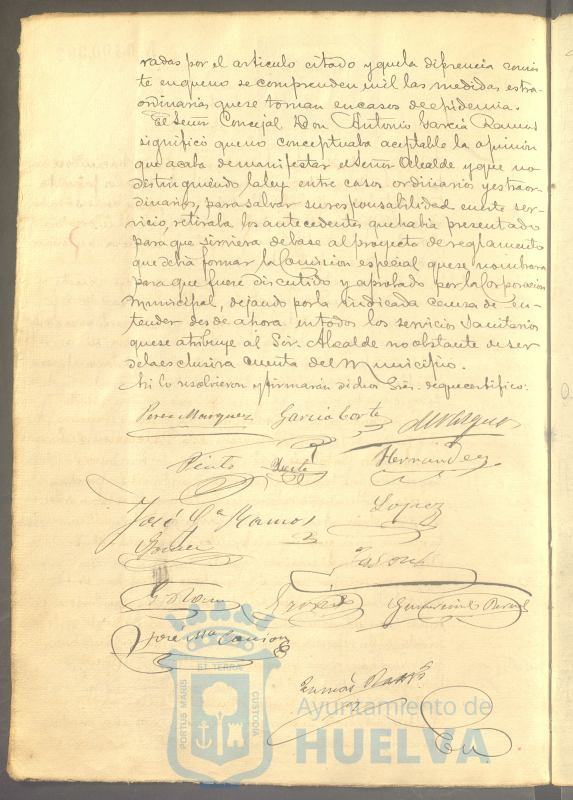 radas por el articulo citado y que la diferencia consis
te en que no se comprenden mil las medidas estra-
ordinarias que se toman en casos de epidemia.
El Señor Concejal Don Antonio Garcia Ramos
significó que no conceptuaba aceptable la opinión
que acaba de manifestar el Señor Alcalde y que no
distinguiendo la ley entre casos ordinarios y estraor-
dinarios, para salvar su responsabilidad en este ser-
vicio, retiraba los antecedentes que habia presentado
para que sirviera de base al proyecto de reglamento
que debia formar la Comision especial que se nombrara
para que fuere discutido y aprobado por la Corporacion
Municipal, dejando por la indicada causa de en-
tender desde ahora en todos los servicios Sanitarios
que se atribuye al Sor. Alcalde no obstante de ser
de la esclusiva cuenta del Municipio.
Asi lo resolvieron y firmarán dichos Sres. de que certifico:
Perez Marquez Garcia Corte M Vazquez
Pinto Hernandez
José Ga Ramos Lopez
José Ma
ET TERRA
PORTUS MARIS CUSTODIA
Ayuntamiento de
HUELVA
En